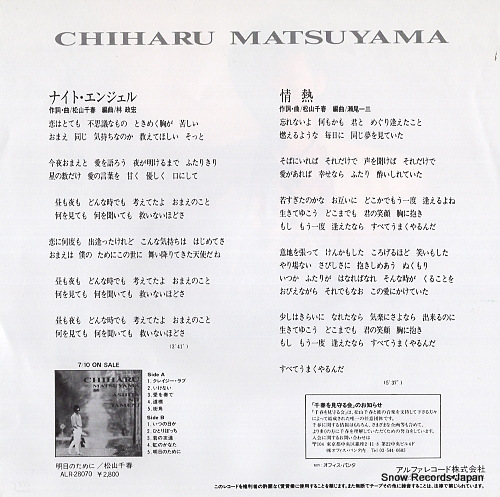 CHIHARU MATSUYAMA
ナイト・エンジェル
作詞・曲/松山千春 編曲/林 政宏
恋はとても 不思議なもの ときめく胸が 苦しい
おまえ 同じ 気持ちなのか 教えてほしい そっと
今夜おまえと 愛を語ろう 夜が明けるまで ふたりきり
星の数だけ 愛の言葉を 甘く 優しく 口にして
昼も夜も どんな時でも 考えてたよ おまえのこと
何を見ても 何を聞いても 救いないほどさ
恋に何度も 出逢ったけれど こんな気持ちは はじめてさ
おまえは 僕の ためにこの世に 舞い降りてきた天使だね
昼も夜も どんな時でも 考えてたよ おまえのこと
何を見ても 何を聞いても 救いないほどさ
昼も夜も どんな時でも 考えてたよ おまえのこと
何を見ても 何を聞いても 救いないほどさ
(3'41")
情熱
作詞・曲/松山千春 編曲/瀬尾一三
忘れないよ 何もかも 君と めぐり逢えたこと
燃えるような 毎日に 同じ夢を見ていた
そばにいれば それだけで 声を聞けば それだけで
愛があれば 幸せなら ふたり 酔いしれていた
若すぎたのかな お互いに どこかでもう一度 逢えるよね
生きてゆこう どこまでも 君の笑顔 胸に抱き
もし もう一度 逢えたなら すべてうまくやるんだ
意地を張って けんかもした ころげるほど 笑いもした
やり場ない さびしさに 抱きしめあう ぬくもり
いつか ふたりが はなればなれ そんな時が くることを
おびえながら それでもなお この愛にかけていた
少しはきらいに なれたなら 気楽にさよなら 出来るのに
生きてゆこう どこまでも 君の笑顔 胸に抱き
もし もう一度 逢えたなら すべてうまくやるんだ
すべてうまくやるんだ
(5'31")
7/10 ON SALE
CHIHARU
MATSUYAMA
Side A
1. クレイジー・ラブ
2. いけない
3. 愛を奏で
4. 道標
5. 街角
Side B
1. いつの日か
2. ひとりぼっち
3. 君の友達
4. 虹のかなた
5. 明日のために
明日のために/松山千春
ALR-28070 ¥2,800
「千春を見守る会」のお知らせ
制作:オフィス・パンタ
アルファレコード株式会社
Snow Records-Japan